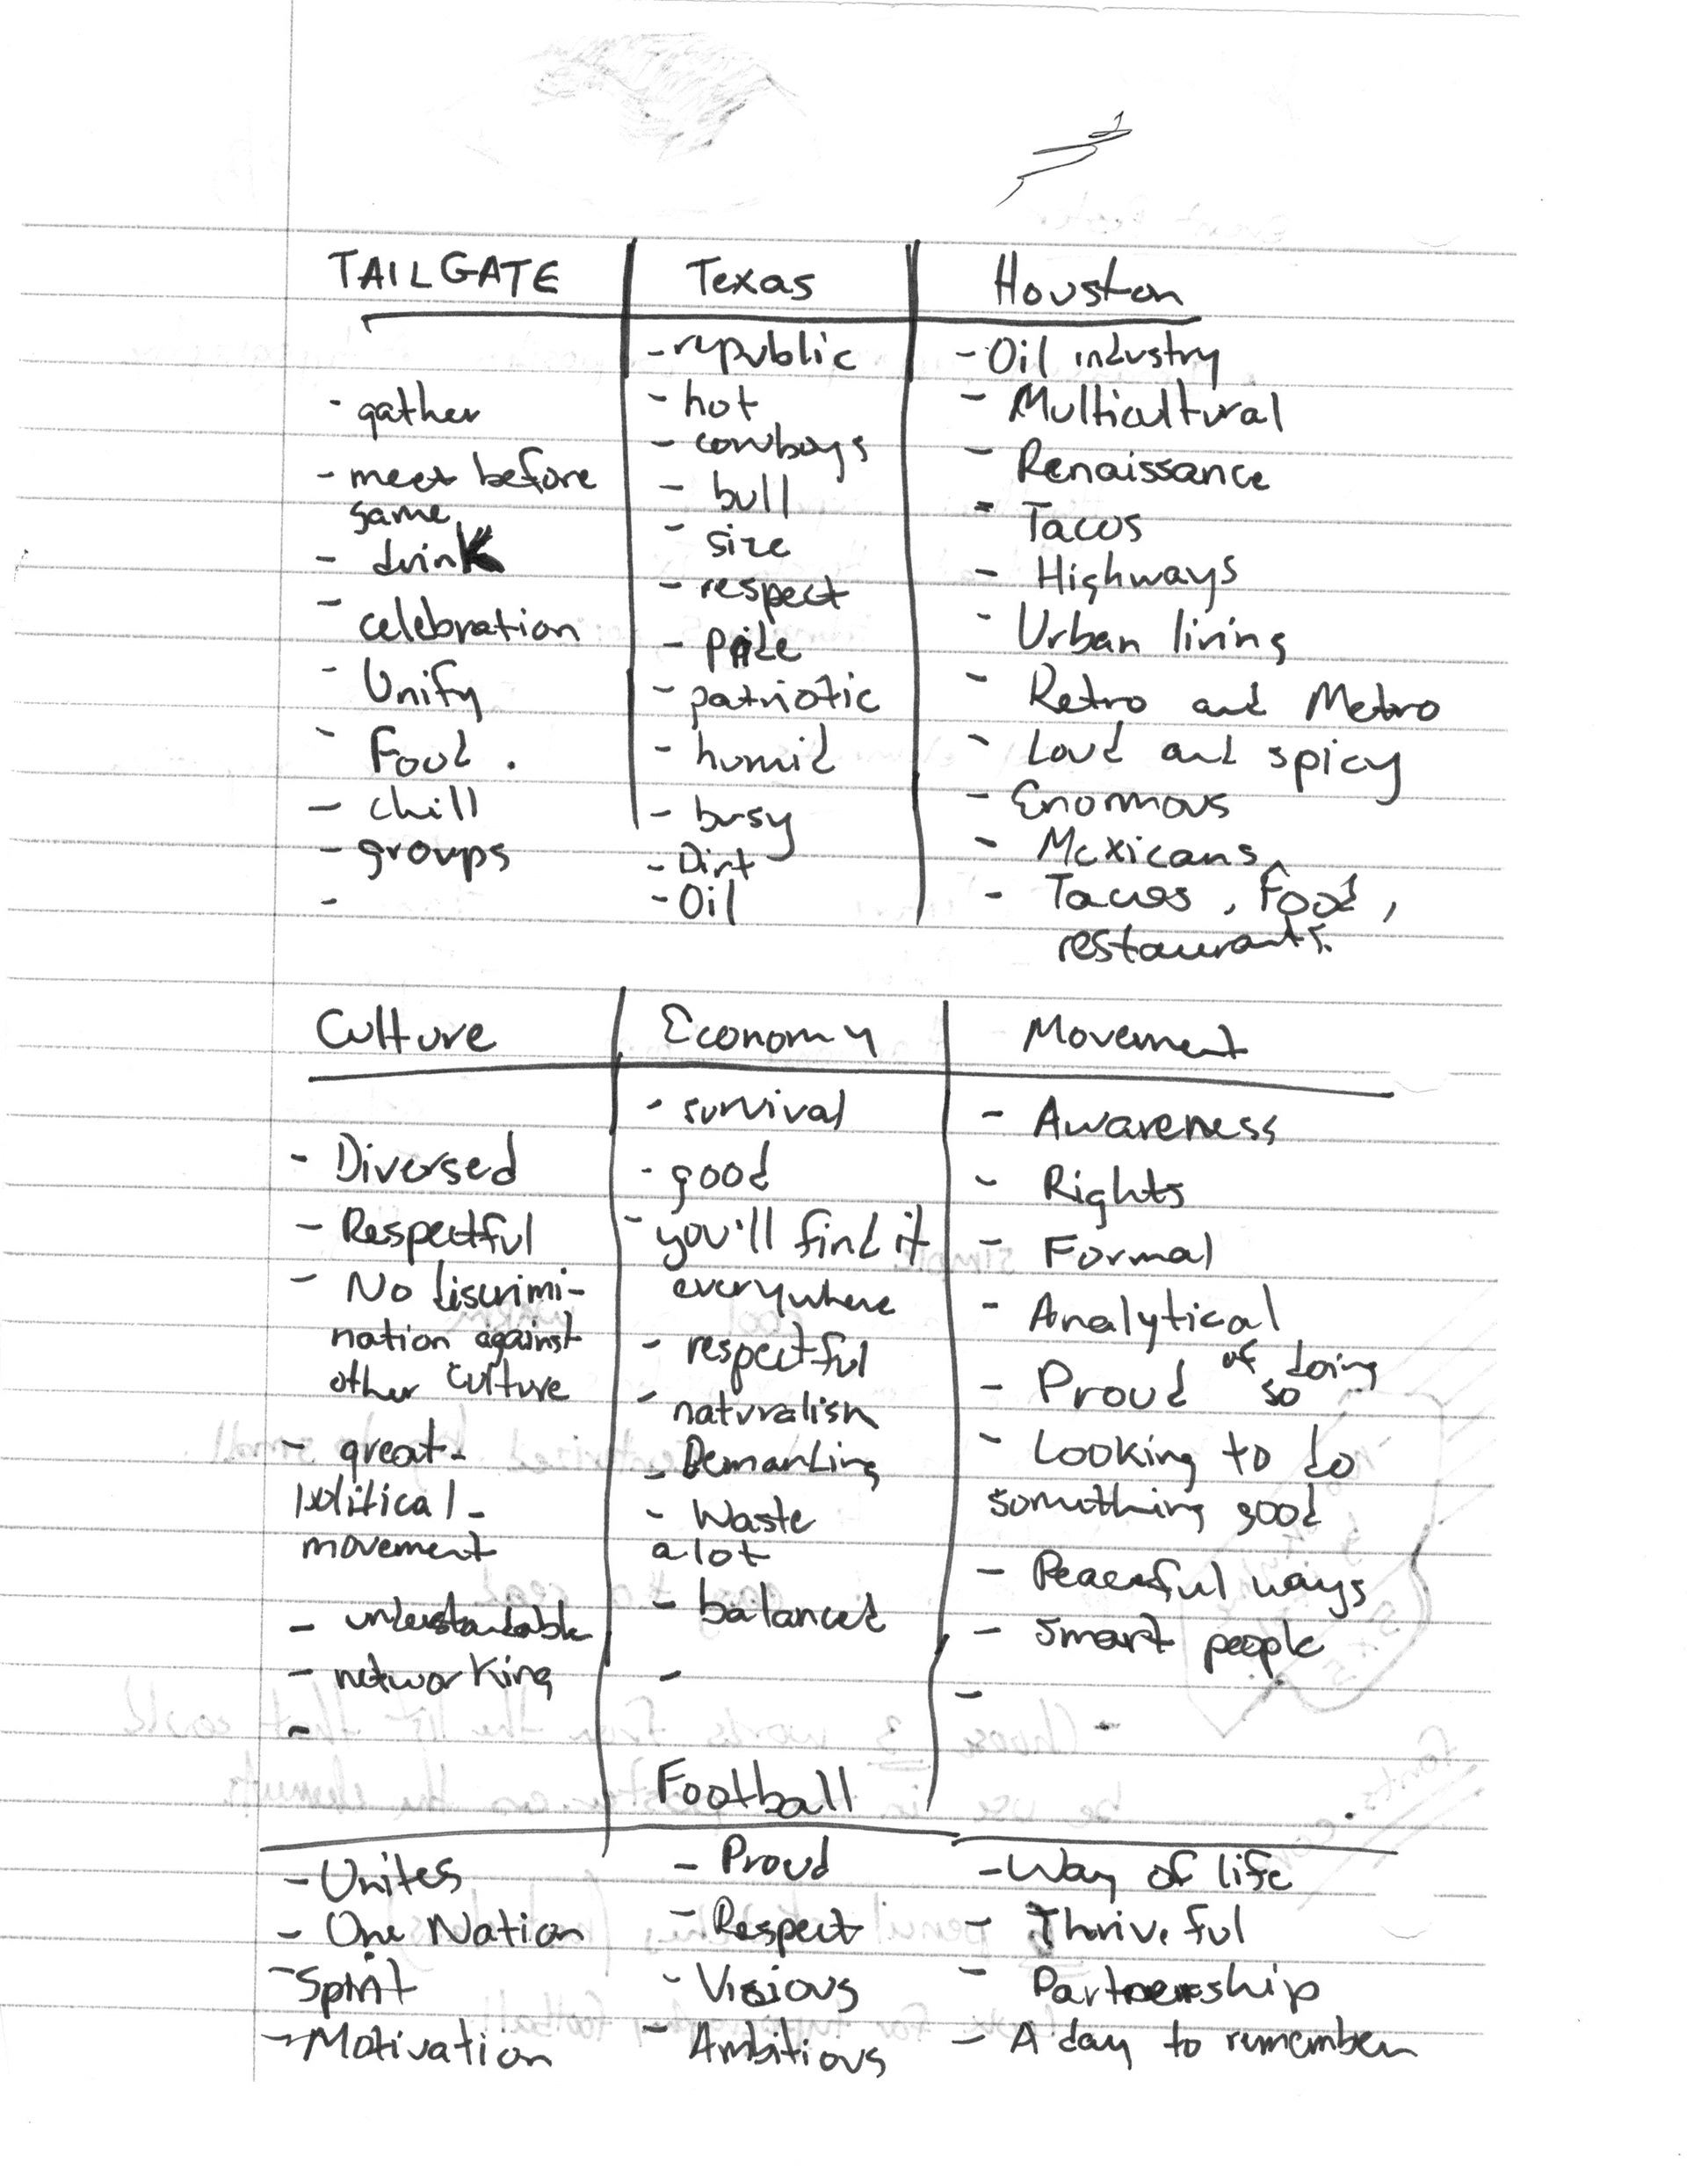 TAILGATE
- gather
- meet before
game
- drink
- celebration
- Unify
- Food.
- chill
- groups
-
Texas
- republic
- hot
- cowboys
- bull
- size
- respect
- pride
- patriotic
- humid
- busy
- Dirt
- Oil
Houston
- Oil industry
- Multicultural
- Renaissance
- Tacos
- Highways
- Urban living
- Retro and Metro
- Loud and spicy
- Enormous
- Mexicans
- Tacos, Food,
restaurants.
Culture
- Diversed
- Respectful
- No discrimi-
nation against
other culture
- great-
political-
movement
- understandable
- networking
-
Economy
- survival
- good
- you'll find it
everywhere
- respectful
- naturalism
- Demanding
- Waste
a lot
- balanced
-
Movement
- Awareness
- Rights
- Formal
- Analytical
- Proud of doing
so
- Looking to do
something good
- Peaceful ways
- smart people
-
Football
- Unites
- One Nation
- Spirit
- Motivation
- Proud
- Respect
- Visious
- Ambitious
- Way of life
- Thriveful
- Partnership
- A day to remember